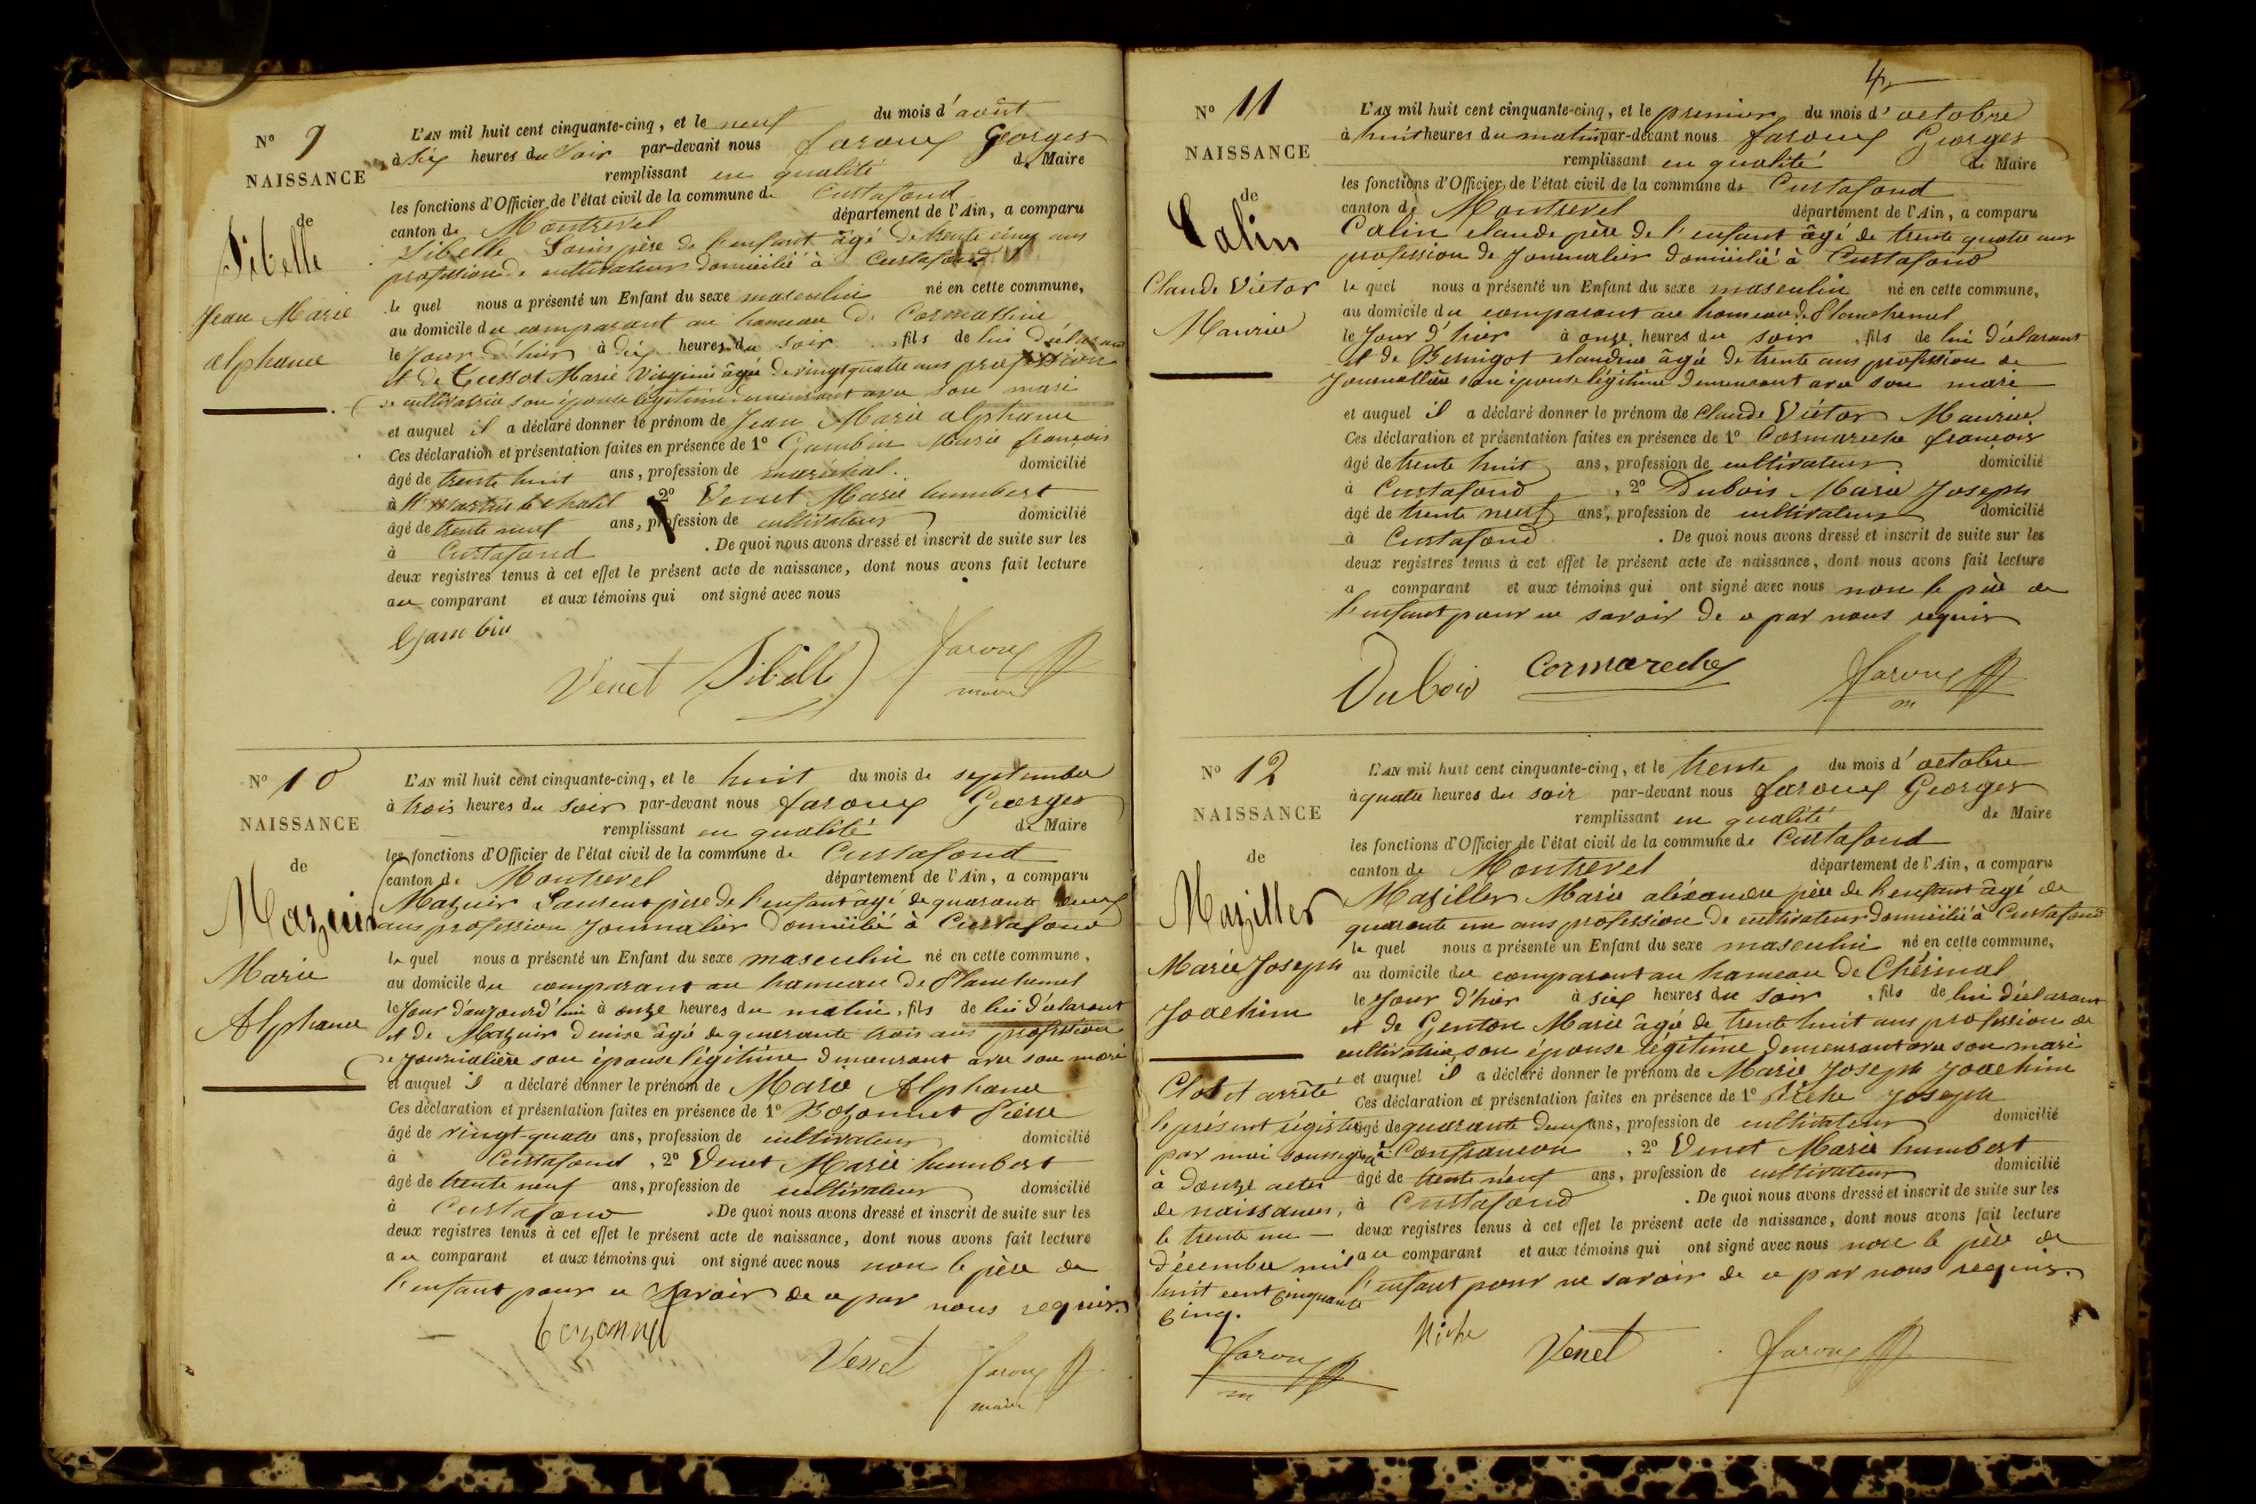 N° 9
NAISSANCE
de
Sibelle
Jean Marie
alphonse
L'AN mil huit cent cinquante-cinq, et le neuf du mois d'août
à six heures du soir par-devant nous Jaroux Georges
remplissant en qualité de Maire
les fonctions d'Officier de l'état civil de la commune de Curtafond
canton de Montrevel département de l'Ain, a comparu
Sibelle Louis père de l'enfant âgé de trente cinq ans
profession de cultivateur domicilié à Curtafond
le quel nous a présenté un Enfant du sexe masculin né en cette commune,
au domicile du comparant au hameau de
le Jour d'hier à dix heures du soir, fils de lui déclarant
et de Cussot Marie Virginie âgée de vingt quatre ans profession
de cultivatrice son épouse légitime demeurant avec son mari
et auquel il a déclaré donner le prénom de Jean Marie alphonse
Ces déclaration et présentation faites en présence de 1° Gambin Marie françois
âgé de trente huit ans, profession de maréchal. domicilié
à St Martin le chatel, 2° Venet Marie humbert
âgé de trente neuf ans, profession de cultivateur domicilié
à Curtafond . De quoi nous avons dressé et inscrit de suite sur les
deux registres tenus à cet effet le présent acte de naissance, dont nous avons fait lecture
au comparant et aux témoins qui ont signé avec nous
Gambin
Venet Sibelle Jaroux
maire
N° 10
NAISSANCE
de
Mazuir
Marie
Alphonse
L'AN mil huit cent cinquante-cinq, et le huit du mois de septembre
à trois heures du soir par-devant nous Jaroux Georges
remplissant en qualité de Maire
les fonctions d'Officier de l'état civil de la commune de Curtafond
canton de Montrevel département de l'Ain, a comparu
Mazuir Laurent père de l'enfant âgé de quarante deux
ans profession Journalier domicilié à Curtafond
le quel nous a présenté un Enfant du sexe masculin né en cette commune,
au domicile du comparant au hameau de Planchemel
le Jour d'aujourd'hui à onze heures du matin, fils de lui déclarant
et de Mazuir Denise âgé de quarante trois ans profession
de journalière son épouse légitime demeurant avec son mari
et auquel il a déclaré donner le prénom de Marie Alphonse
Ces déclaration et présentation faites en présence de 1° Bozonnet Pierre
âgé de vingt-quatre ans, profession de cultivateur domicilié
à Curtafond, 2° Venet Marie humbert
âgé de trente neuf ans, profession de cultivateur domicilié
à Curtafond . De quoi nous avons dressé et inscrit de suite sur les
deux registres tenus à cet effet le présent acte de naissance, dont nous avons fait lecture
au comparant et aux témoins qui ont signé avec nous non le père de
l'enfant pour ce savoir de ce par nous requis.
bozonnet
Venet Jaroux
maire
4
N° 11
NAISSANCE
de
Calin
Claude Victor
Maurice
L'AN mil huit cent cinquante-cinq, et le premier du mois d'octobre
à huit heures du matin par-devant nous Jaroux Georges
remplissant en qualité de Maire
les fonctions d'Officier de l'état civil de la commune de Curtafond
canton de Montrevel département de l'Ain, a comparu
Calin claude père de l'enfant âgé de trente quatre ans
profession de Journalier domicilié à Curtafond
le quel nous a présenté un Enfant du sexe masculin né en cette commune,
au domicile du comparant au hameau de Planchemel
le Jour d'hier à onze heures du soir, fils de lui déclarant
et de Bernigot claudine âgée de trente ans profession de
Journalière son épouse légitime demeurant avec son mari
et auquel il a déclaré donner le prénom de Claude Victor Maurice.
Ces déclaration et présentation faites en présence de 1° Cormareche françois
âgé de trente huit ans, profession de cultivateur domicilié
à Curtafond, 2° Dubois Marie Joseph
âgé de trente neuf ans, profession de cultivateur domicilié
à Curtafond . De quoi nous avons dressé et inscrit de suite sur les
deux registres tenus à cet effet le présent acte de naissance, dont nous avons fait lecture
a comparant et aux témoins qui ont signé avec nous non le père de
l'enfant pour ce savoir de ce par nous requis
Dubois Cormareche Jaroux
m
N° 12
NAISSANCE
de
Maziller
Marie Joseph
Joachim
L'AN mil huit cent cinquante-cinq, et le trente du mois d'octobre
à quatre heures du soir par-devant nous Jaroux Georges
remplissant en qualité de Maire
les fonctions d'Officier de l'état civil de la commune de Curtafond
canton de Montrevel département de l'Ain, a comparu
Maziller Marie aléxandre père de l'enfant âgé de
quarante un ans profession de cultivateur domicilié à Curtafond
le quel nous a présenté un Enfant du sexe masculin né en cette commune,
au domicile du comparant au hameau de Chérinal
le Jour d'hier à six heures du soir, fils de lui déclarant
et de Genton Marie âgée de trente huit ans profession de
cultivatrice son épouse légitime demeurant avec son mari
et auquel il a déclaré donner le prénom de Marie Joseph Joachim
Ces déclaration et présentation faites en présence de 1° Piche Joseph
âgé de quarante deux ans, profession de cultivateur domicilié
à Confrancon, 2° Venet Marie humbert
âgé de trente neuf ans, profession de cultivateur domicilié
à Curtafond . De quoi nous avons dressé et inscrit de suite sur les
deux registres tenus à cet effet le présent acte de naissance, dont nous avons fait lecture
au comparant et aux témoins qui ont signé avec nous non le père de
l'enfant pour ne savoir de ce par nous requis.
Clos et arrêté
le présent régistre
par moi soussigné
à douze actes
de naissances,
le trente un
décembre mil
huit cent cinquante
cinq.
Jaroux
m
Piche Venet Jaroux